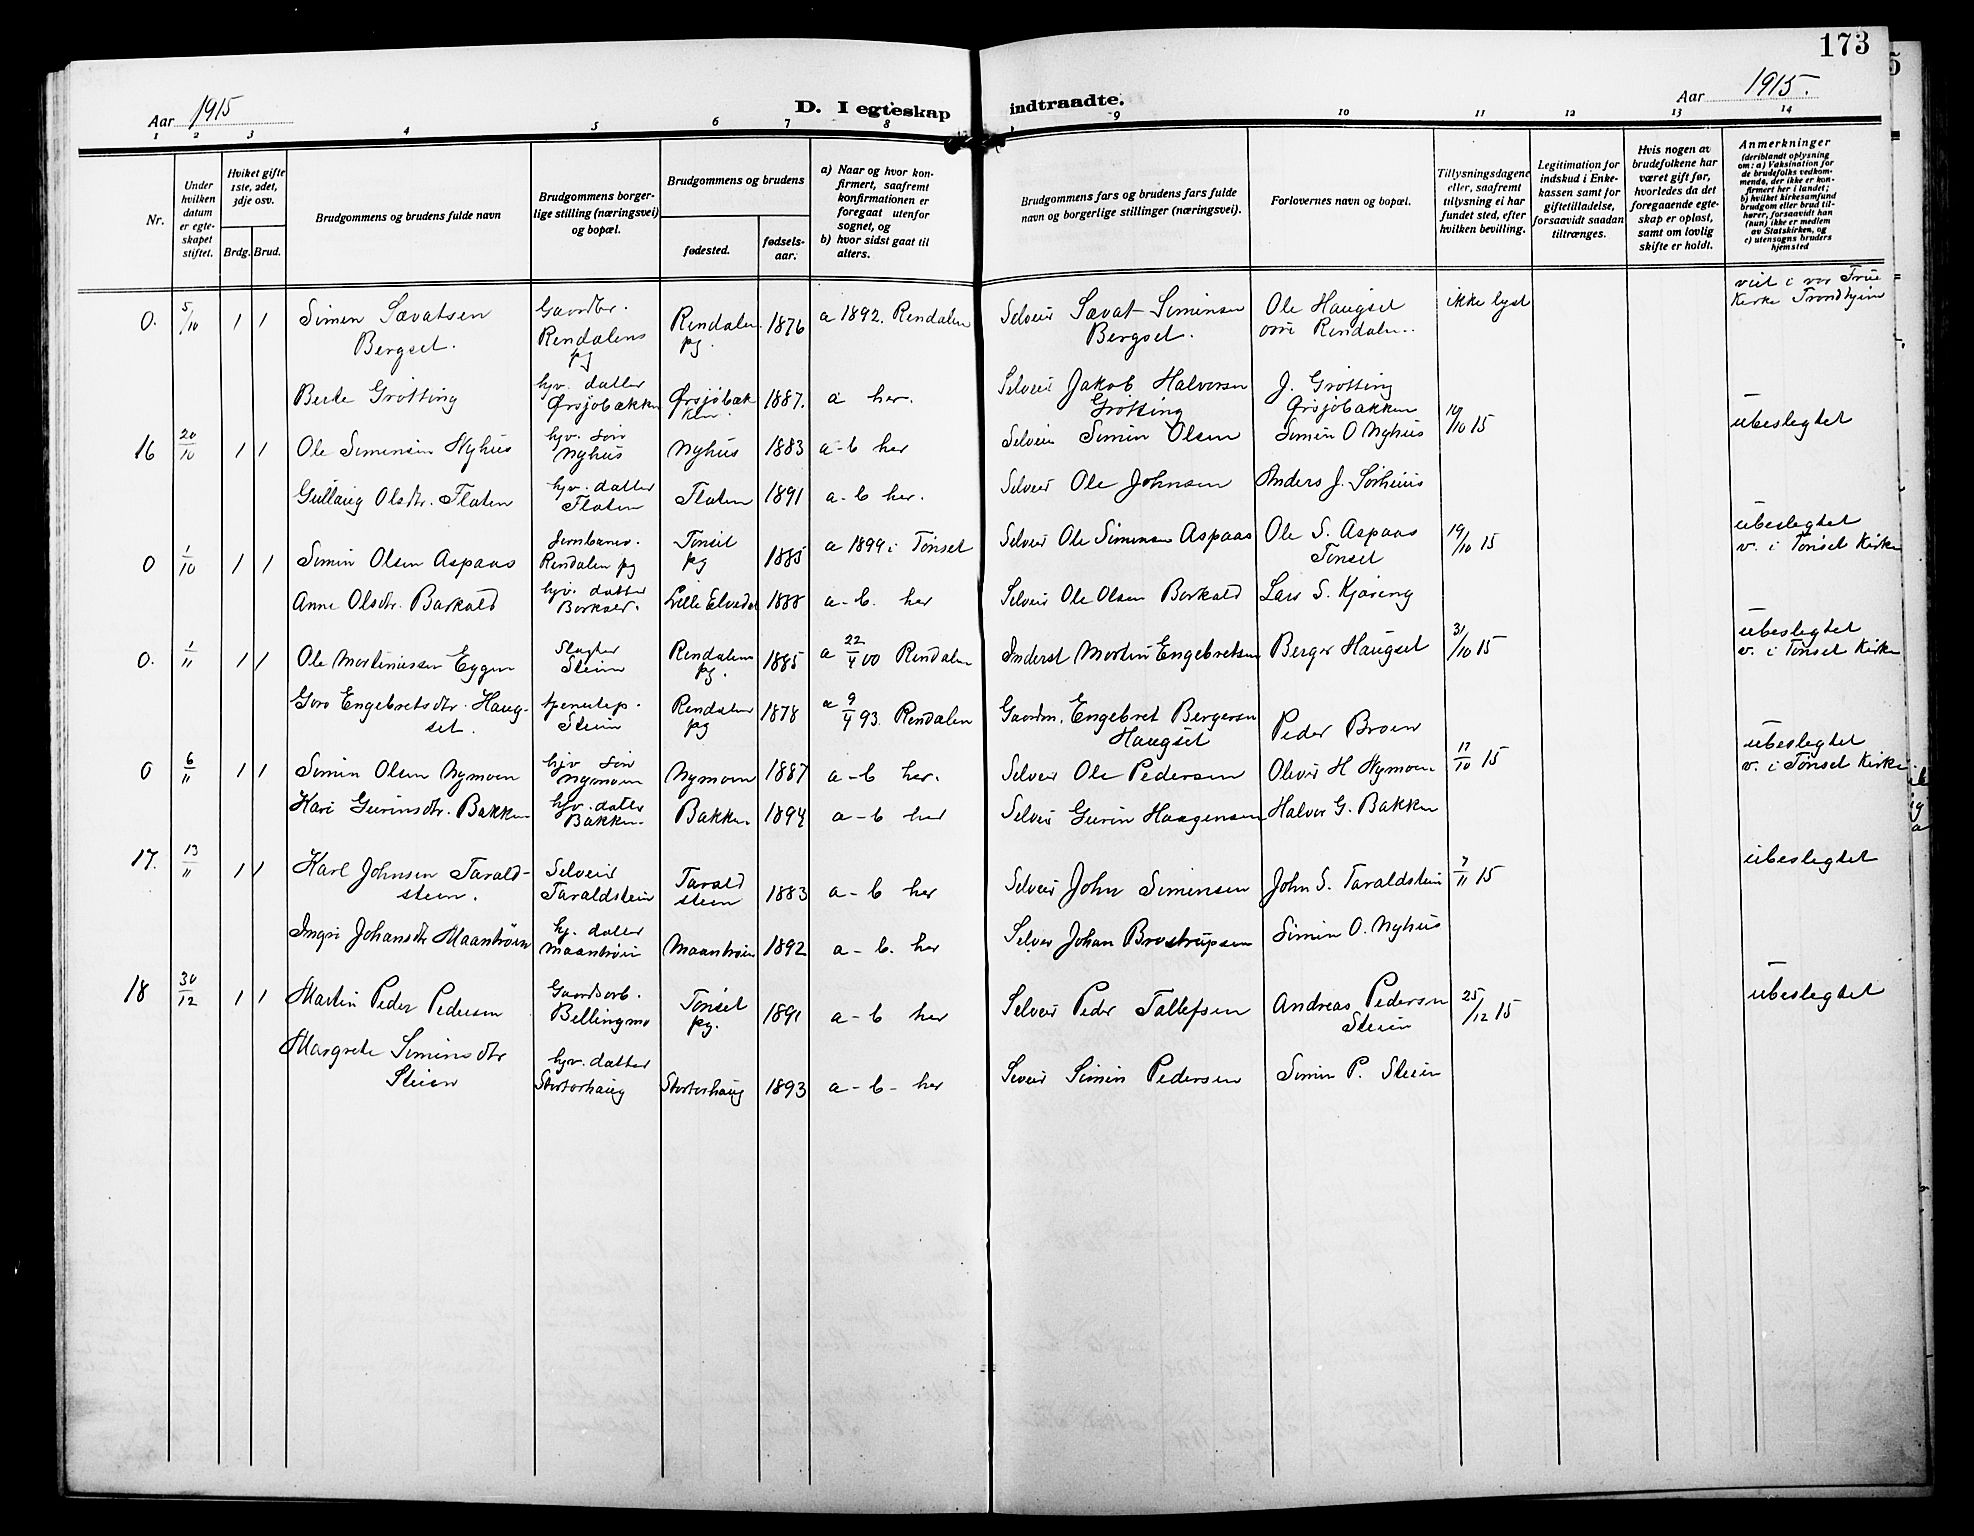 173
Aar 1915
D. I egteskap indtraadte.
Aar 1915.
1 2 3 4 5 6 7 8 9 10 11 12 13 14
Nr.
Under hvilken datum er egteskapet stiftet.
Hviket gifte 1ste, 2det, 3dje osv.
Brdg. Brud.
Brudgommens og brudens fulde navn
Brudgommens borgerlige stilling (næringsvei) og bopæl.
Brudgommens og brudens
fødested.
fødselsaar.
a) Naar og hvor konfirmert, saafremt konfirmationen er foregaat utenfor sognet, og
b) hvor sidst gaat til alters.
Brudgommens fars og brudens fars fulde navn og borgerlige stillinger (næringsvei).
Forlovernes navn og bopæl.
Tillysningsdagene eller, saafremt tillysning ei har fundet sted, efter hvilken bevilling.
Legitimation for indskud i Enkekassen samt for giftetilladelse, forsaavidt saadan tiltrænges.
Hvis nogen av brudefolkene har været gift før, hvorledes da det foregaaende egteskap er opløst, samt om lovlig skifte er holdt.
Anmerkninger
(deriblandt oplysning om: a) Vaksination for de brudefolks vedkommende, der ikke er konfirmert her i landet; b) hvilket kirkesamfund brudgom eller brud tilhører, forsaavidt han (hun) ikke er medlem av Statskirken, og c) utensogns bruders hjemsted
0. 5/10 1 1 Simen Sævatsen Bergset. Gaardbr. Rendalens pg Rendalen pg. 1876 a 1892. Rendalen Selveier Sævat Simensen Bergset. Ole Haugset Rendalen. ikke lyst viet i vor Frue Kirke Trondhjem
Berte Grötting hjv. datter Ørsjöbækken Ørsjöbækken. 1887. a her. Selveier Jakob Halvorsen Grötting J. Grötting Ørsjöbakken
16 20/10 1 1 Ole Simensen Nyhus hjv. sön Nyhus Nyhus 1883 a-b her Selveier Simen Olsen Simen O Nyhus 10/10 15 ubeslegtet
Gullaug Olsdtr. Flaten hjv. datter Flaten Flaten 1891 a-b her. Selveier Ole Johnsen Anders J. Sörhuus
0 1/10 1 1 Simen Olsen Aspaas Jernbanev. Rendalen pg Tönset pg 1885 a 1899 i Tönset Selveier Ole Simensen Aspaas Ole S. Aspaas Tönset 19/10 15 ubeslegtet v. i Tönset Kirke
Anne Olsdtr. Barkald hjv. datter Lille Elvedal 1888 a-b. her Selveier Ole Olsen Barkald Lars S. Kjæreng
0. 1/11 1 1 Ole Martinussen Eggen Slagter Steien Rendalens pg. 1885 a 22/4 00 Rendalen Inderst Martin Engebretsen Berger Haugset 31/10 15 ubeslegtet v. i Tönset Kirke
Goro Engebretsdtr. Haugset. Steien Rendalen pg 1878 a 9/4 93. Rendalen Gaardm. Engebret Bergersen Haugset Peder Broen
0 6/11 1 1 Simen Olsen Nymoen hjv sön Nymoen Nymoen 1887 a-b her. Selveier Ole Pedersen Oliver H Nymoen 17/10 15 ubeslegtet v. i Tönset Kirke
Kari Gurinsdtr. Bakken hjv. datter Bakken. Bakken. 1894 a-b her Selveier Gurin Haagensen Halvor G. Bakken
17. 13/11 1 1 Karl Johnsen Taraldsteen. Selveier Taraldsteen Taraldsteen 1883 a-b her Selveier John Simensen John S. Taraldsteen 7/11 15 ubeslegtet
Ingri Johansdtr Maantröen hj. datter Maantröen Maantröen 1892 a-b. her Selveier Johan Brostrupsen Simen O. Nyhus
18 30/12 1 1 Martin Peder Pedersen Gaardarb. Bellingmo Tönset pg. 1891 a-b her Selveier Peder Tollefsen Andreas Pedersen Steien 25/12 15 ubeslegtet
Margrete Simensdtr Steien hjv. datter Stortorhaug Stortorhaug 1893 a-b- her Selveier Simen Pedersen Simen P. Steien